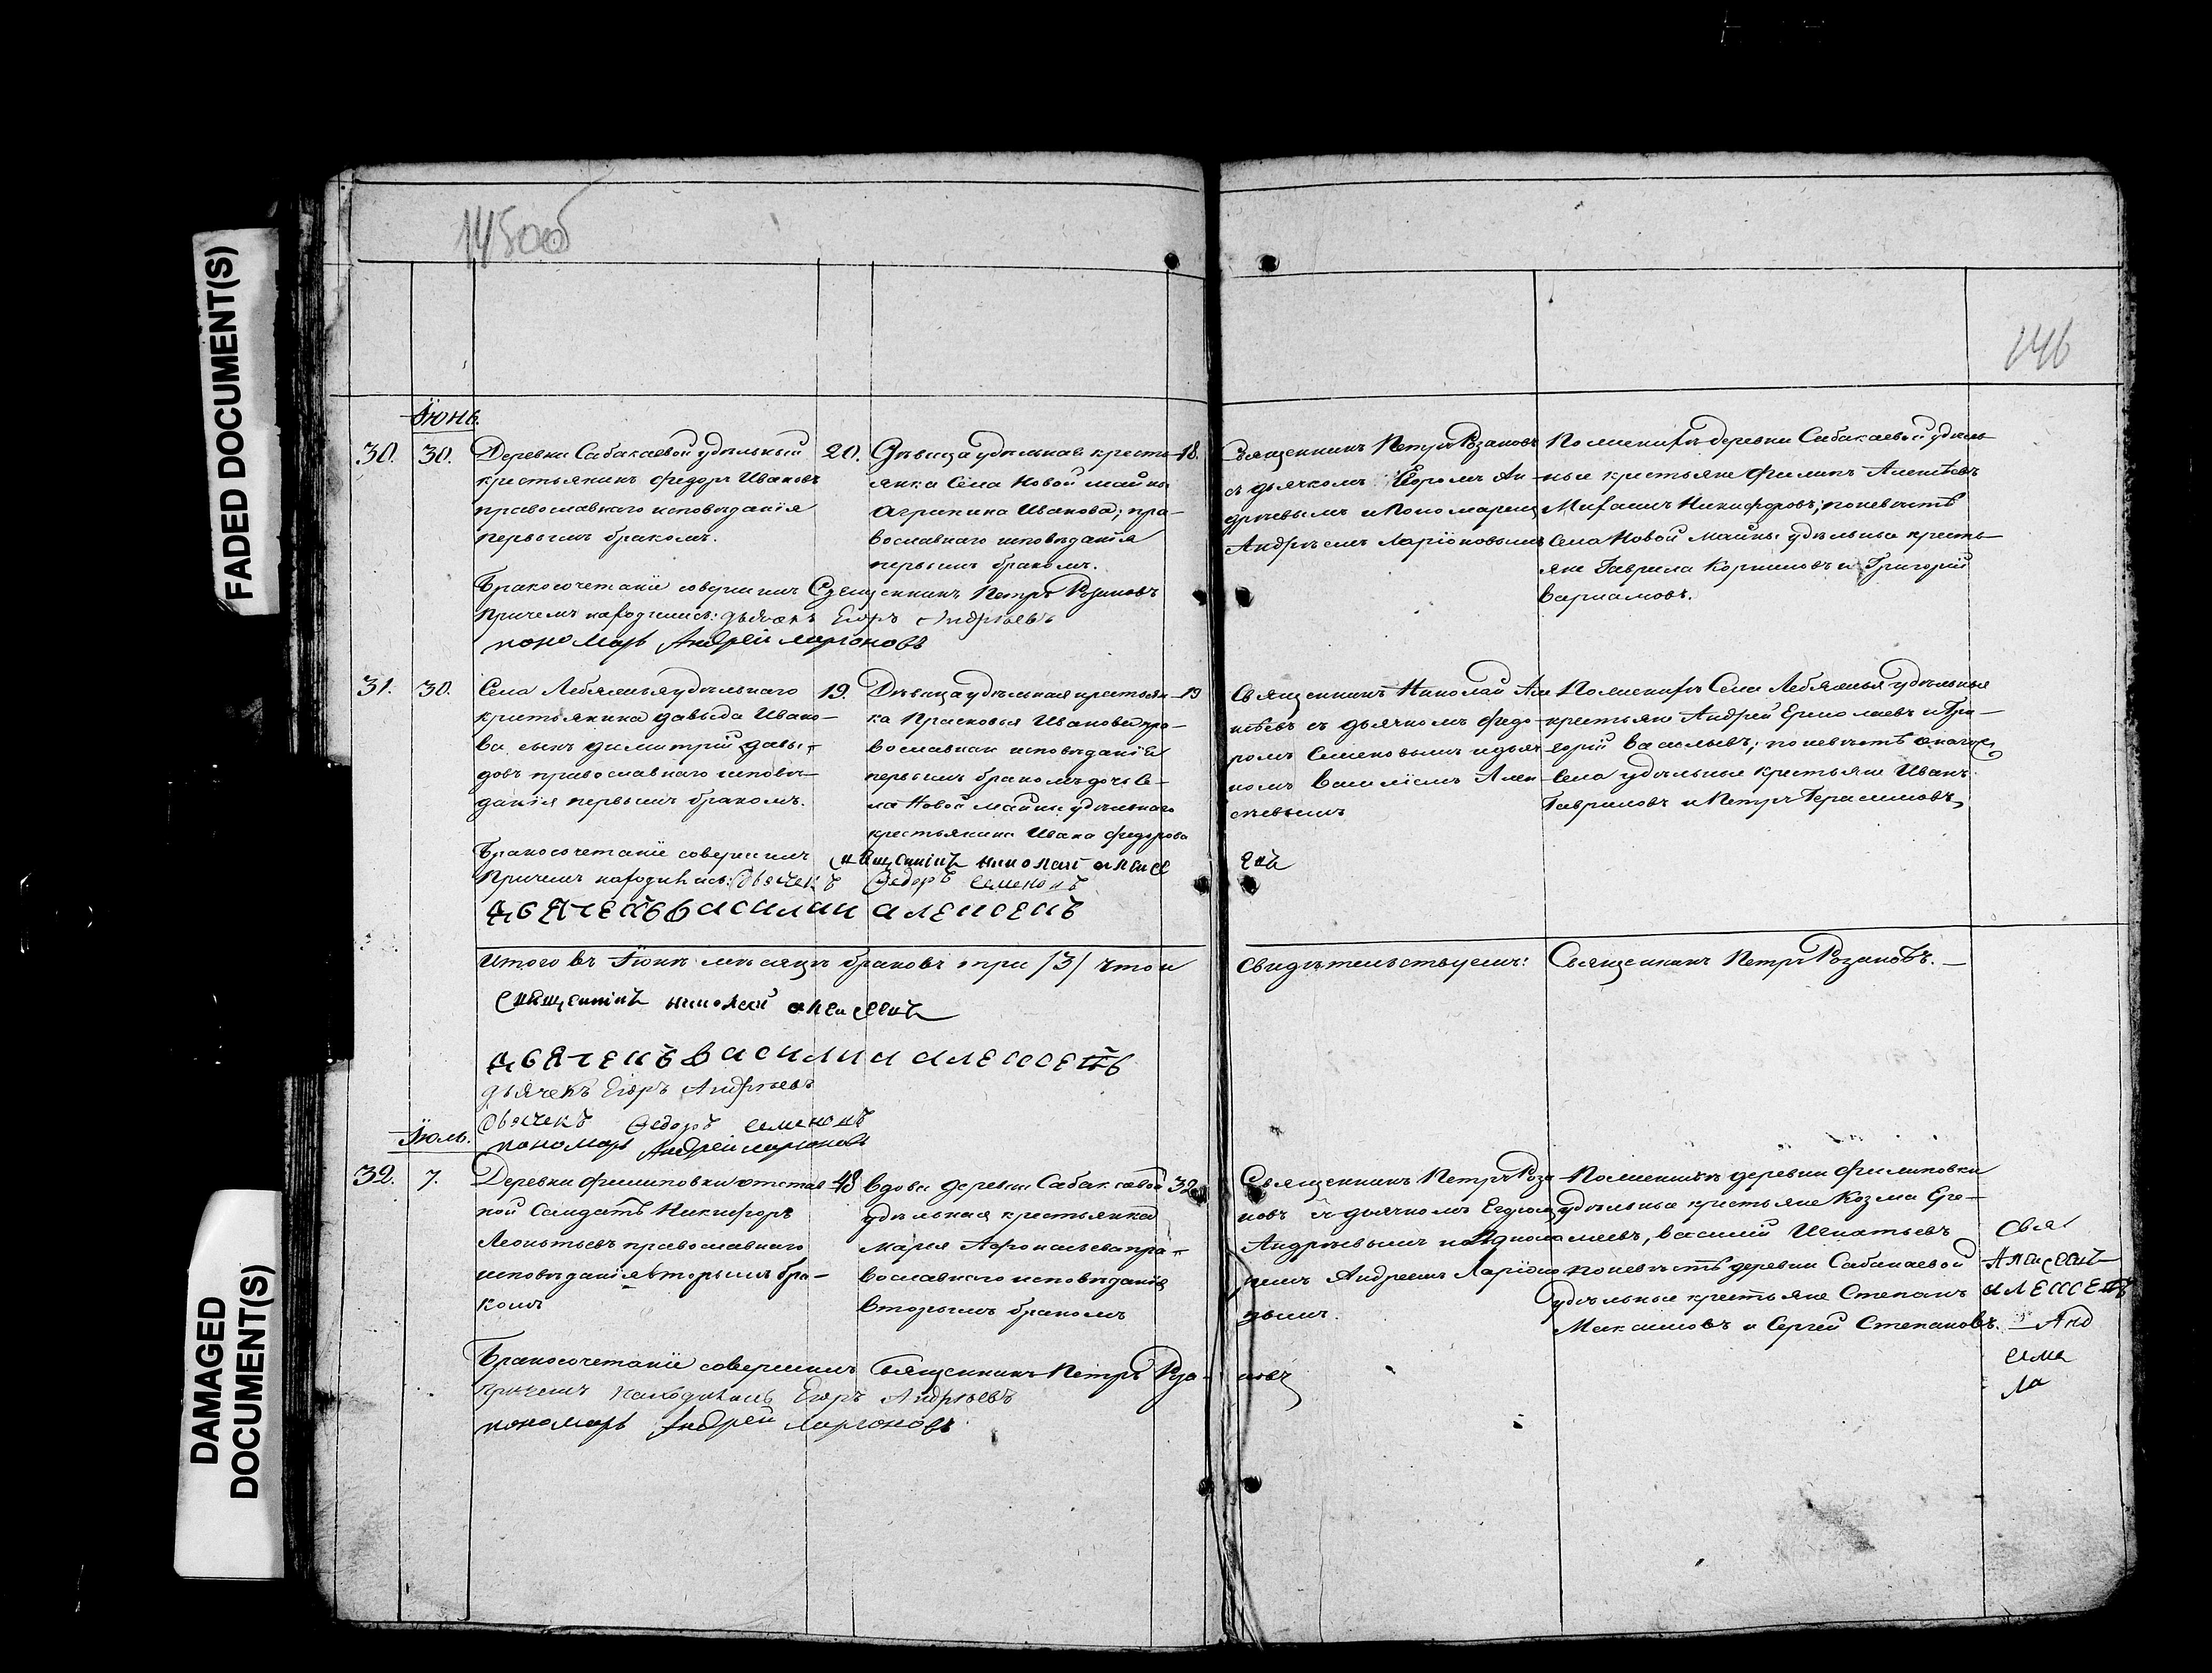 FADED DOCUMENT(S)
DAMAGED
DOCUMENT(S)
145об
146
Іюнь.
30. 30.
Деревни Сабакаевой удѣльный
крестьянинъ Федоръ Ивановъ
православнаго исповѣданія
первымъ бракомъ.
20.
Дѣвица удѣльная кресть-
янка Села Новой Майны
Агрипина Иванова; пра-
вославнаго исповѣданія
первымъ бракомъ.
18.
Священникъ Петръ Розановъ
съ дьячкомъ Егоромъ Ан-
дрѣевымъ и Пономаремъ
Андрѣемъ Ларіоновымъ
По женихѣ деревни Сабакаевой удѣль-
ные крестьяне Филипъ Алексѣевъ
Никифоровъ; по невѣстѣ
Села Новой Майны удѣльные кресть-
яне Гаврила и Григорій
Варламовъ.
Бракосочетаніе совершилъ Священникъ Петръ Розановъ
Причемъ находились: дьячекъ Егоръ Андрѣевъ
пономарь Андрей Ларіоновъ
31. 30.
Села Лебяжья удѣльнаго
крестьянина Давыда Ивано-
ва сынъ Димитрій Давы-
довъ православнаго исповѣ-
данія первымъ бракомъ.
19.
Дѣвица удѣльная крестьян-
ка Прасковья Иванова пра-
вославнаго исповѣданія
первымъ бракомъ дочь Се-
ла Новой Майны удѣльнаго
крестьянина Ивана Федорова
19
Священникъ Николай Але-
ксѣевъ съ дьячкомъ Федо-
ромъ Семеновымъ и дьяч-
комъ Василіемъ Алек-
сѣевымъ
По женихѣ Села Лебяжья удѣльные
крестьяне Андрей Ермолаевъ и Гри-
горій Васильевъ; по невѣстѣ
Села удѣльные крестьяне Иванъ
Гавриловъ и Петръ Герасимовъ
Бракосочетаніе совершилъ священникъ николай алексе
евъ
Причемъ находились: Дьячекъ Федоръ Семеновъ
дьячекъ василии алексеевъ
Итого въ Іюнѣ мѣсяцѣ браковъ три /3/ что и
свидѣтельствуемъ: Священникъ Петръ Розановъ.
священникъ николай алексеевъ
дьячекъ василии алексеевъ
дьячекъ Егоръ Андрѣевъ
Дьячекъ Федоръ Семеновъ
пономарь Андрей Ларіоновъ
Іюль.
32. 7.
Деревни Филиповки отстав-
ной Солдатъ Никифоръ
Леонтьевъ православнаго
исповѣданія вторымъ бра-
комъ
48
Вдова деревни Сабакаевой
удѣльная крестьянка
Марья Афонасьева пра-
вославнаго исповѣданія
вторымъ бракомъ
32
Священникъ Петръ Роза-
новъ съ дьячкомъ Егоромъ
Андрѣевымъ и Понома-
ремъ Андреемъ Ларіоно-
вымъ.
По женихѣ деревни Филиповки
удѣльные крестьяне Козма Его-
Василій Игнатьевъ
по невѣстѣ деревни Сабакаевой
удѣльные крестьяне Степанъ
Максимовъ и Сергей Степановъ.
свя
Алексеевъ
алексеевъ
Анд
семе
Ла
Бракосочетаніе совершилъ Священникъ Петръ Роза-
новъ
Причемъ находились Егоръ Андрѣевъ
пономарь Андрей Ларіоновъ